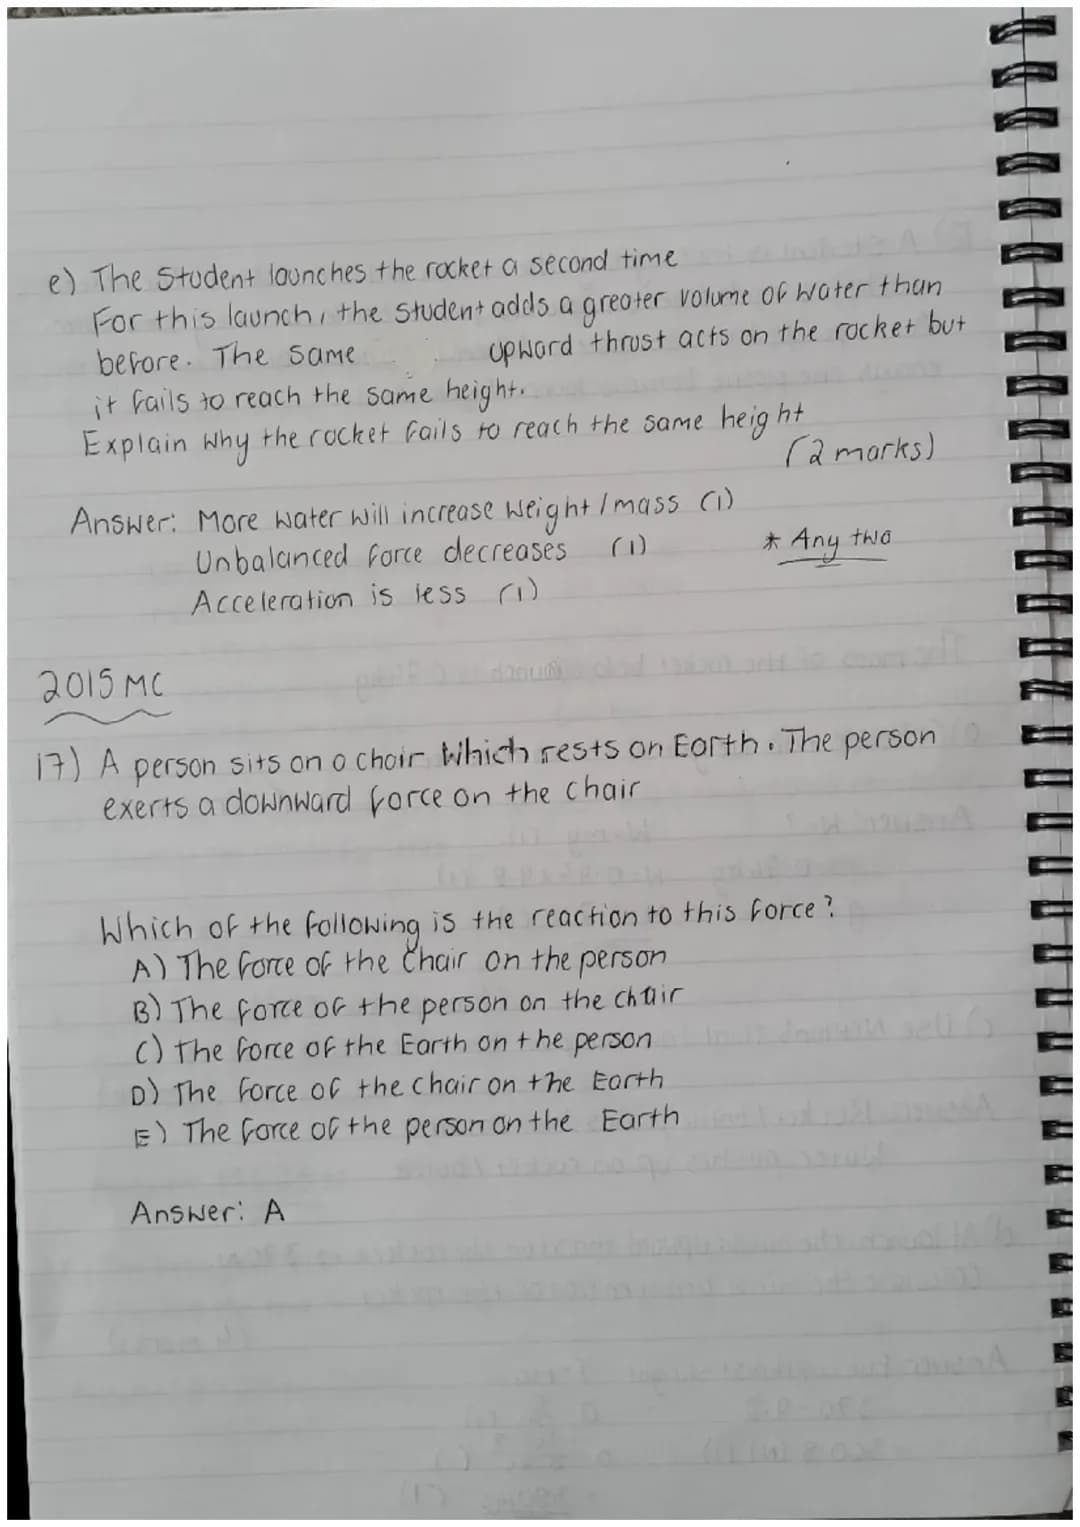 e) The Student launches the rocket a second time
For this launch, the student adds a greater volume of water than
before. The same upward thrust acts on the rocket but
it fails to reach the same height.
Explain why the rocket fails to reach the same height
(2 marks)
Answer: More water will increase weight/mass (1)
Unbalanced force decreases (1) * Any two
Acceleration is less (1)
2015 MC
17) A person sits on a chair which rests on Earth. The person
exerts a downward force on the chair
Which of the following is the reaction to this force?
A) The force of the chair on the person
B) The force of the person on the chair
C) The force of the Earth on the person
D) The force of the chair on the Earth
E) The force of the person on the Earth
Answer: A